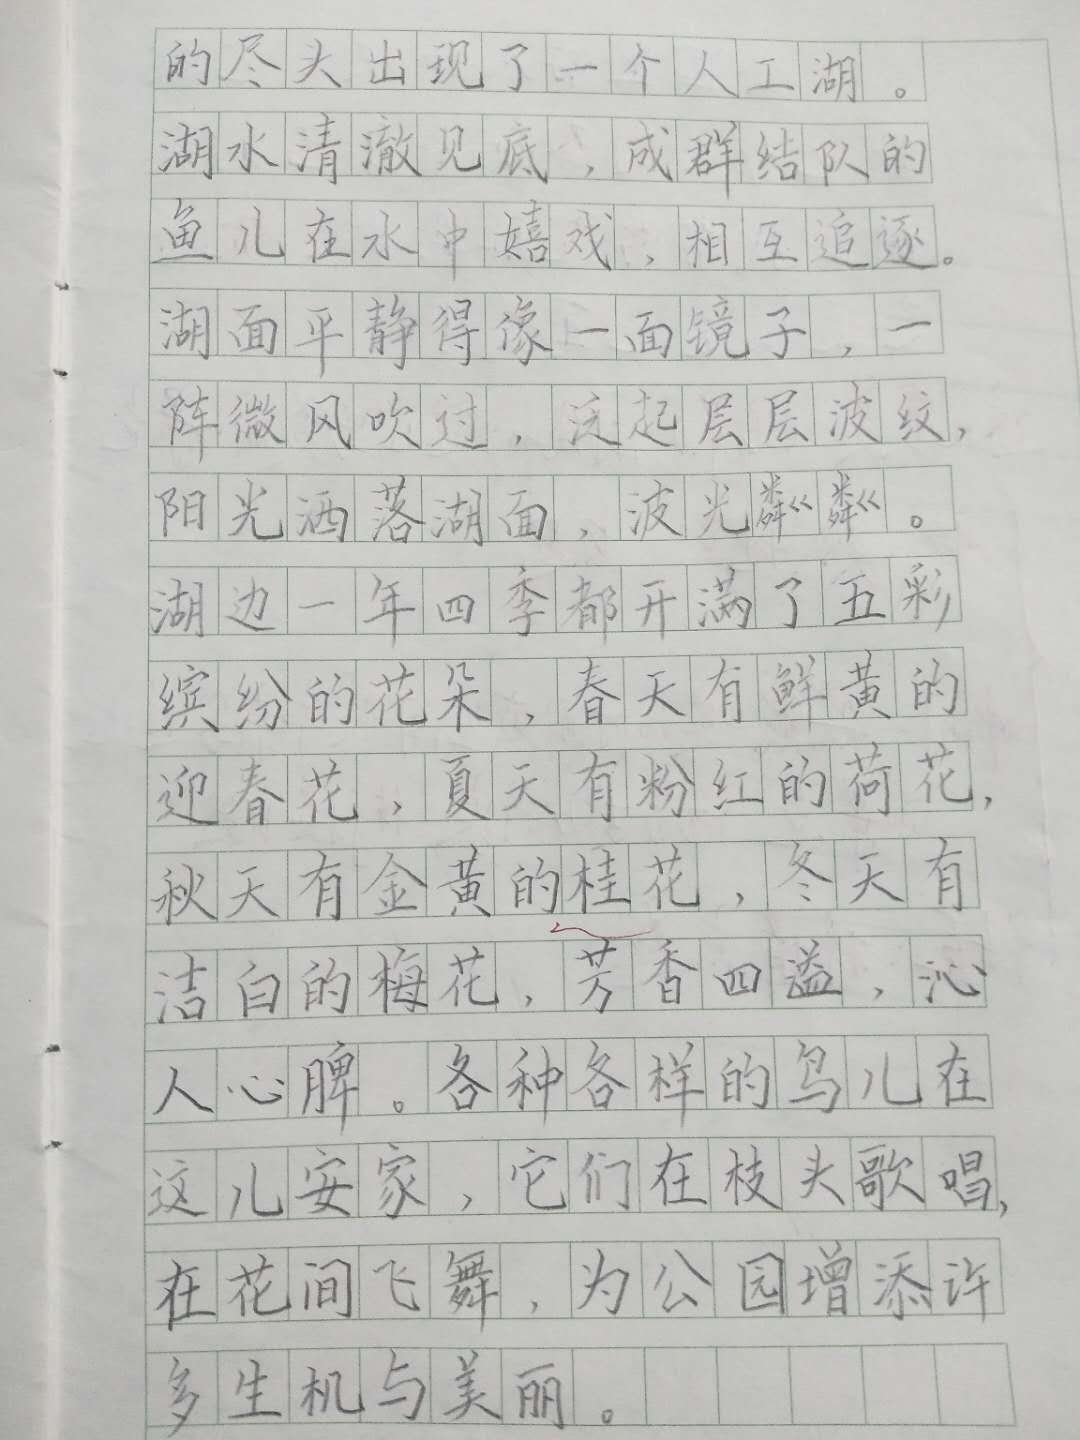 的尽头出现了一个人工湖。
湖水清澈见底，成群结队的
鱼儿在水中嬉戏，相互追逐。
湖面平静得像一面镜子，一
阵微风吹过，泛起层层波纹，
阳光洒落湖面，波光粼粼。
湖边一年四季都开满了五彩
缤纷的花朵，春天有鲜黄的
迎春花，夏天有粉红的荷花，
秋天有金黄的桂花，冬天有
洁白的梅花，芳香四溢，沁
人心脾。各种各样的鸟儿在
这儿安家，它们在枝头歌唱，
在花间飞舞，为公园增添许
多生机与美丽。